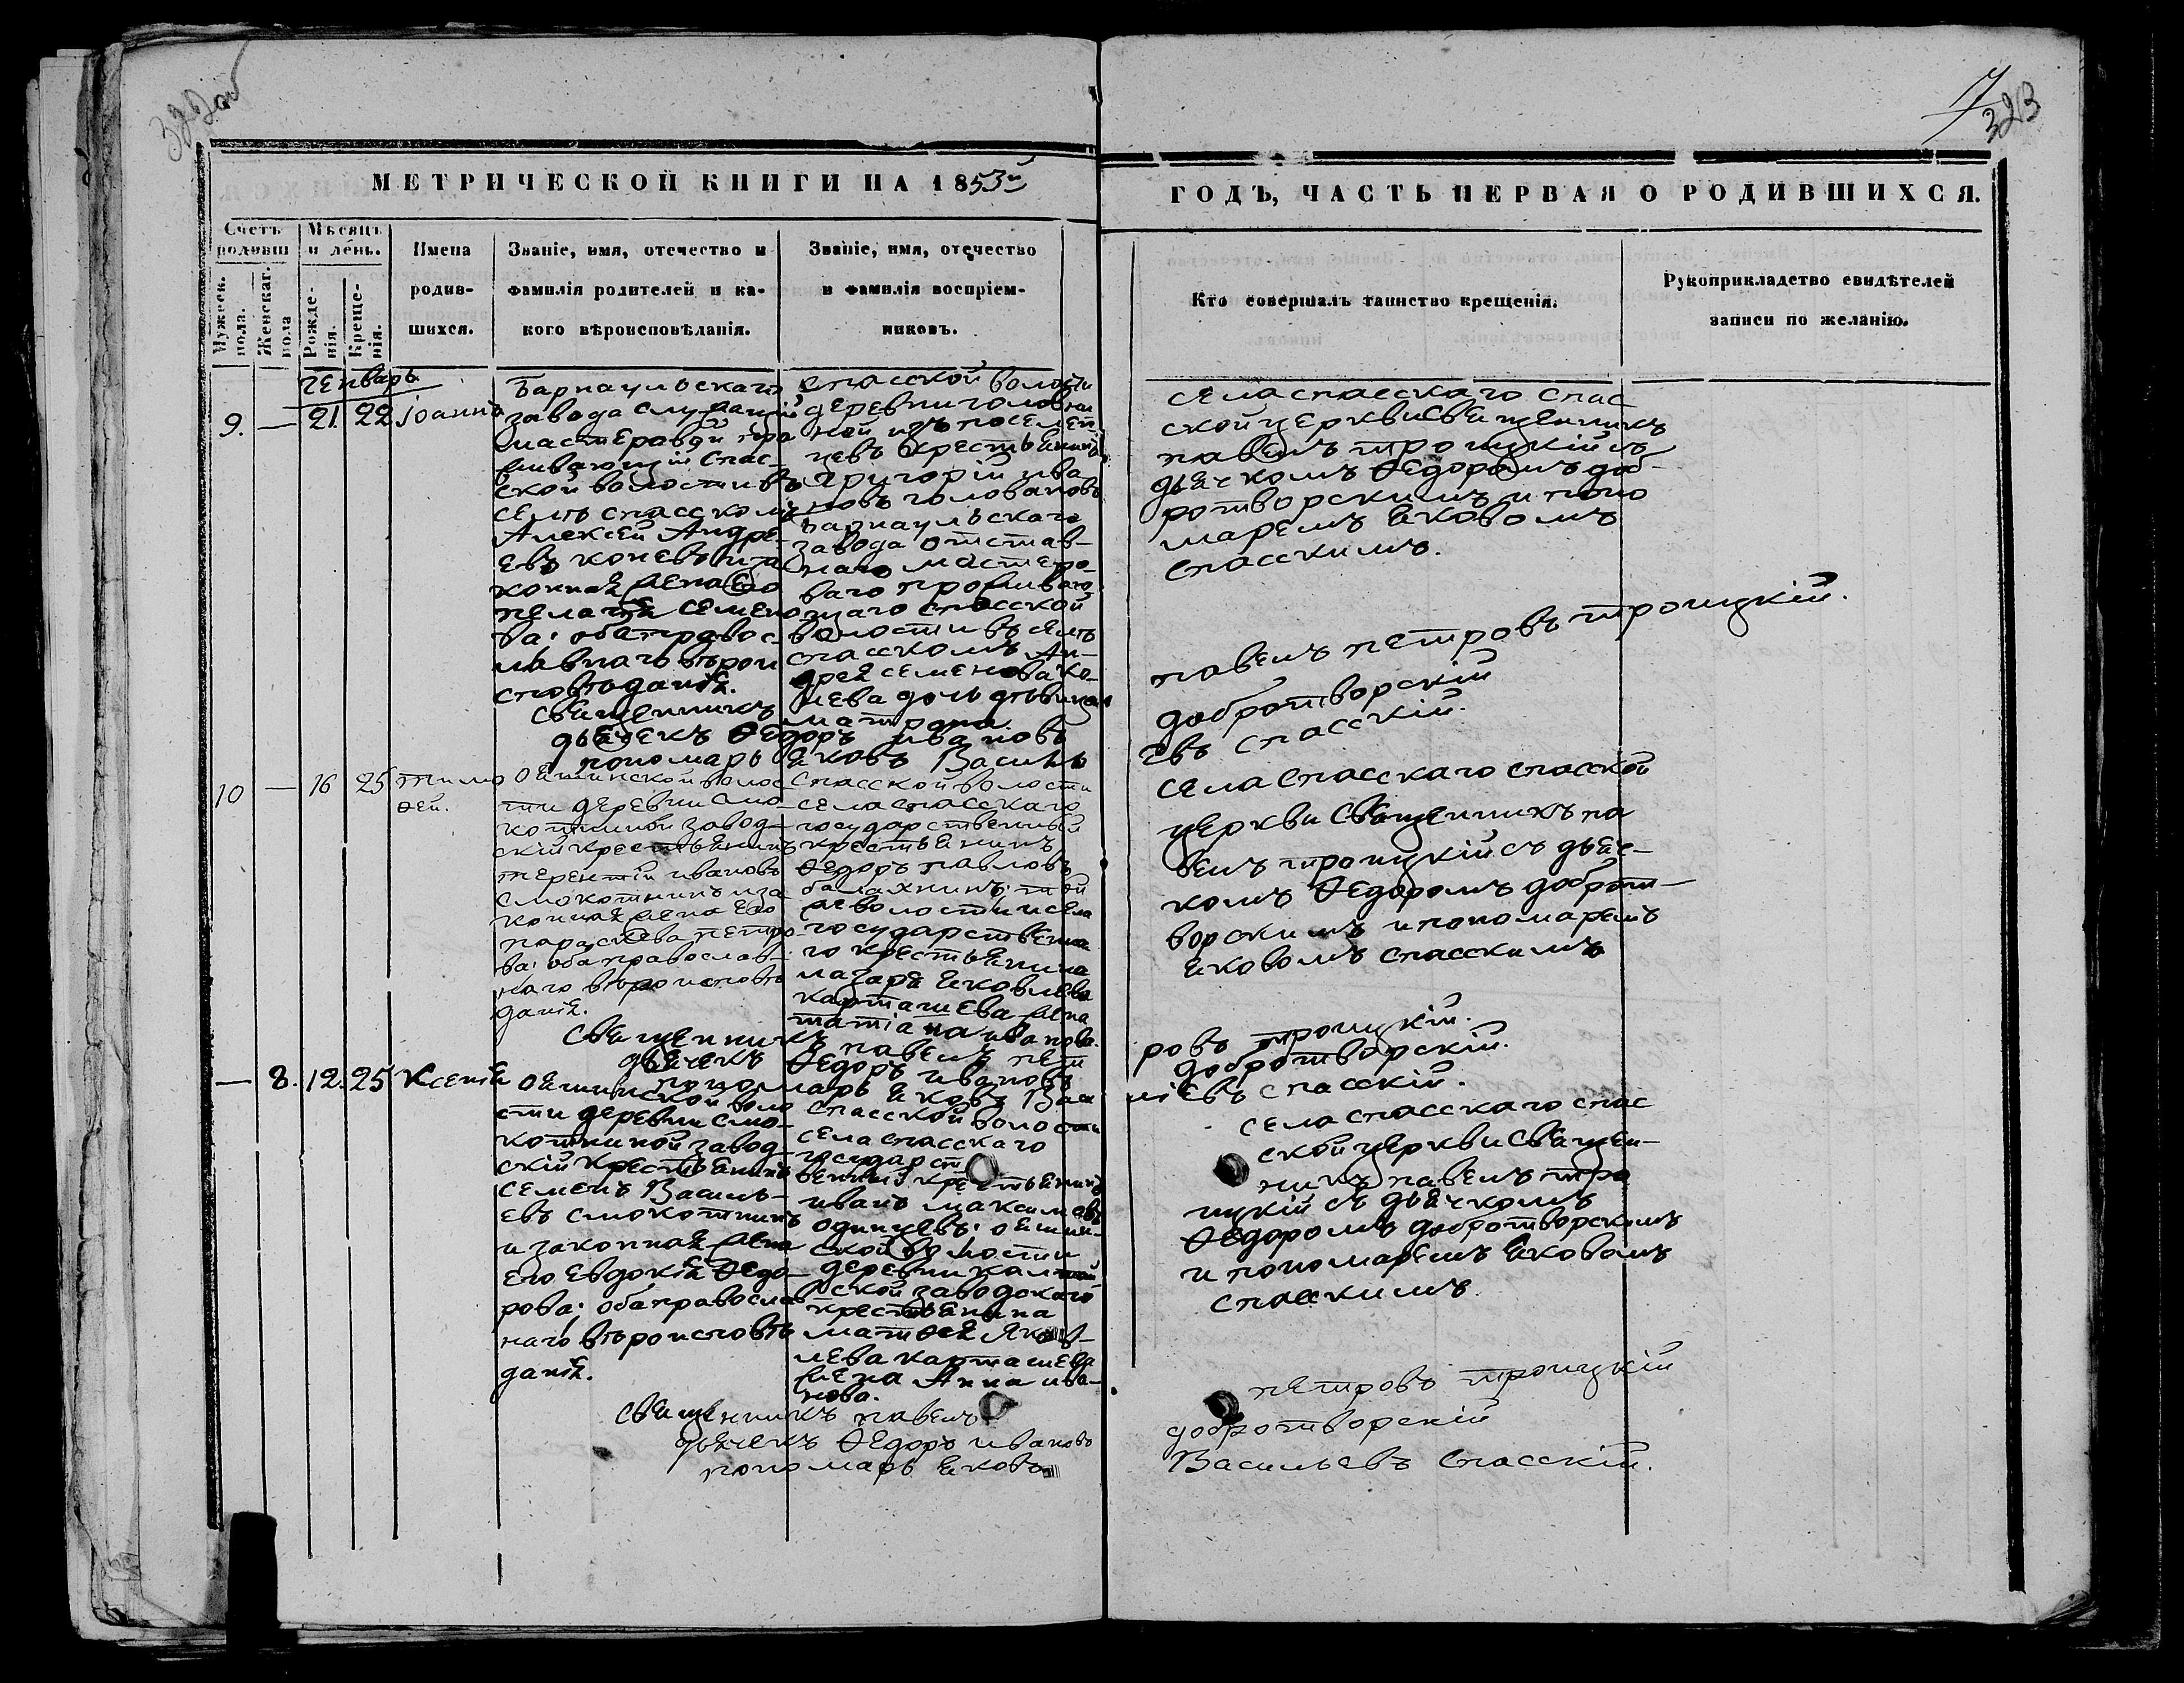 322об
7
323
МЕТРИЧЕСКОЙ КНИГИ НА 1853й
ГОДЪ, ЧАСТЬ ПЕРВАЯ О РОДИВШИХСЯ.
Счетъ родивш
Мужеск. пола.
Женскаг. пола
Мѣсяцъ и день.
Рожде-нія.
Креще-нія.
Имена
родив-
шихся.
Званіе, имя, отечество и
фамилія родителей и ка-
кого вѣроисповѣданія.
Званіе, имя, отечество
и фамилія воспріем-
никовъ.
Кто совершалъ таинство крещенія.
Рукоприкладство свидѣтелей
записи по желанію.
генварь
9. — 21. 22 Іоаннъ
Барнаульскаго
завода служащій
мастеровой про
живающій Спас-
ской волости въ
селѣ спасскомъ
Алексей Андре-
евъ коневъ и за
конная жена Его
пелагія семено
ва: оба правос-
лавнаго вѣрои
сповѣданія.
спасской волости
деревни головни
ной изъ поселен
цевъ крестьянинъ
григорій ива
новъ головановъ
барнаульскаго
завода отстав-
наго мастеро-
ваго прожива
ющаго спасской
волости въ селѣ
спасскомъ Ан-
дрея семенова ко-
нева дочь дѣвица
матрона
села спасскаго спас
ской церкви священникъ
павелъ троицкій съ
дьячкомъ Ѳедоромъ доб-
ротворскимъ и поно
маремъ яковомъ
спасскимъ.
священникъ павелъ петровъ троицкій.
дьячекъ Ѳедоръ ивановъ добротворскій
пономарь яковъ Василь евъ спасскій.
10 — 16 25 тимо
ѳей.
ояшинской волос
ти деревни смо-
котиной завод-
скій крестьянинъ
терентій ивановъ
смокотнинъ и за
конная жена Его
параскева петро
ва: оба православ-
наго вѣроисповѣ
данія.
спасской волости
села спасскаго
государственный
крестьянинъ
Ѳедоръ павловъ
балахнинъ; той
же волости и села
государственна
го крестьянина
лазаря яковлева
карташева жена
татіана иванова.
села спасскаго спасской
церкви священникъ па
велъ троицкій съ дьяч-
комъ Ѳедоромъ доброт-
ворскимъ и пономаремъ
яковомъ спасскимъ
священникъ павелъ пет ровъ троицкій.
дьячекъ Ѳедоръ ивановъ добротворскій.
пономарь яковъ Васи ліевъ спасскій.
— 8. 12. 25 Ксенія
ояшинской воло
сти деревни смо-
котниной завод-
скій крестьянинъ
семенъ Василь-
евъ смокотнинъ
и законная жена
его Евдокія Ѳедо-
рова; оба православ
наго вѣроисповѣ
данія.
спасской волости
села спасскаго
государст
венный крестьянинъ
иванъ максимовъ
одинцевъ: ояшин-
ской волости
деревни
ской заводскаго
крестьянина
матѳея Яков-
лева карташева
жена Анна ива-
нова.
села спасскаго спас
ской церкви священ-
никъ павелъ тро
ицкій съ дьячкомъ
Ѳедоромъ добротворскимъ
и пономаремъ яковомъ
спасскимъ.
священникъ павелъ петровъ троицкій
дьячекъ Ѳедоръ ивановъ добротворскій
пономарь яковъ Васильевъ спасскій.